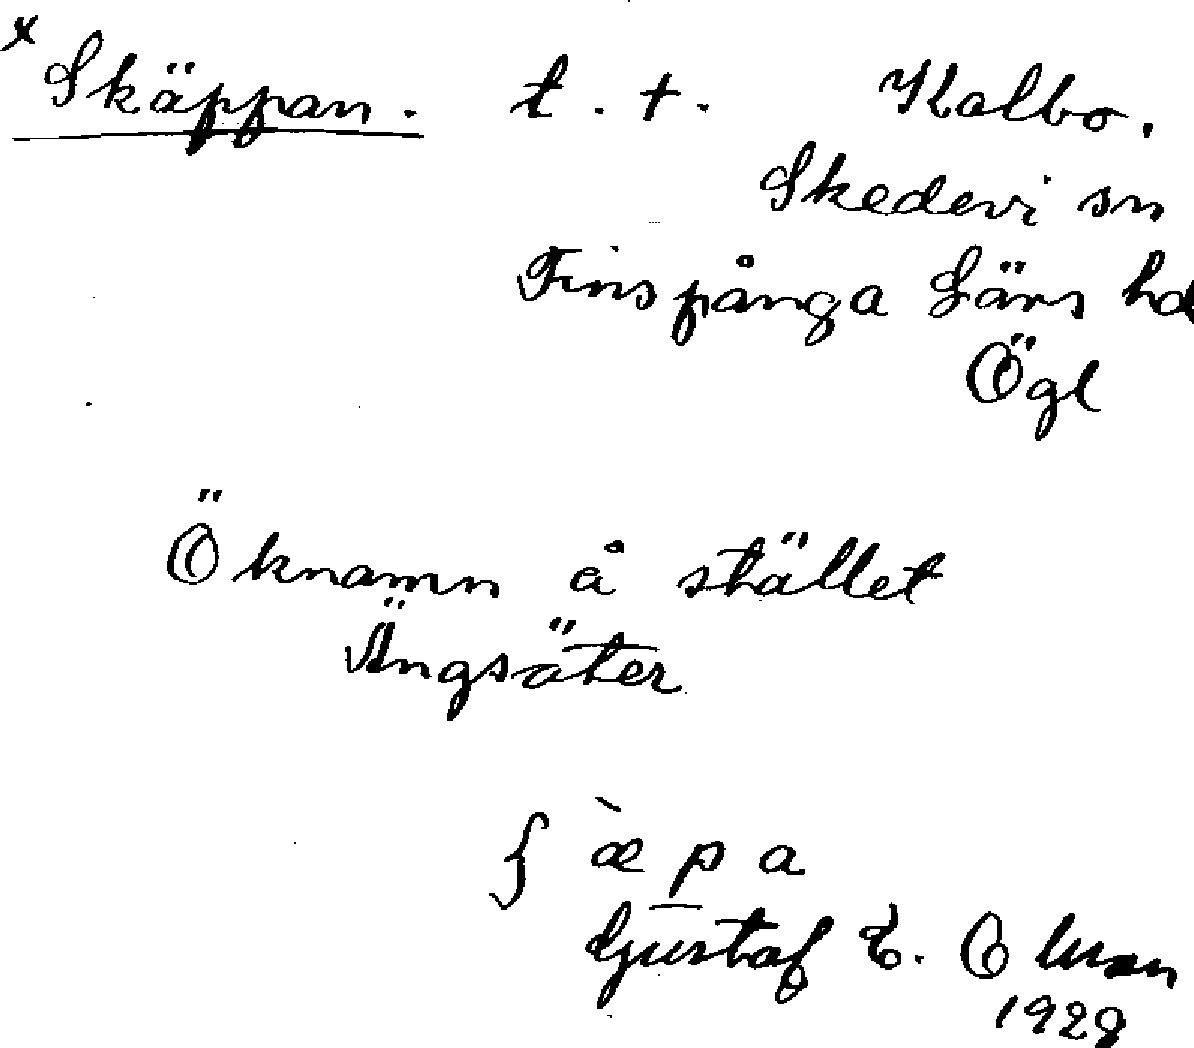 x Skäppan. t. +. Kalbo.
Skedevi sn
Finspånga Läns hd
Ögl
Öknamn å stället
Ängsäter
ʃ æ̀ p a
Gustaf E.
1928